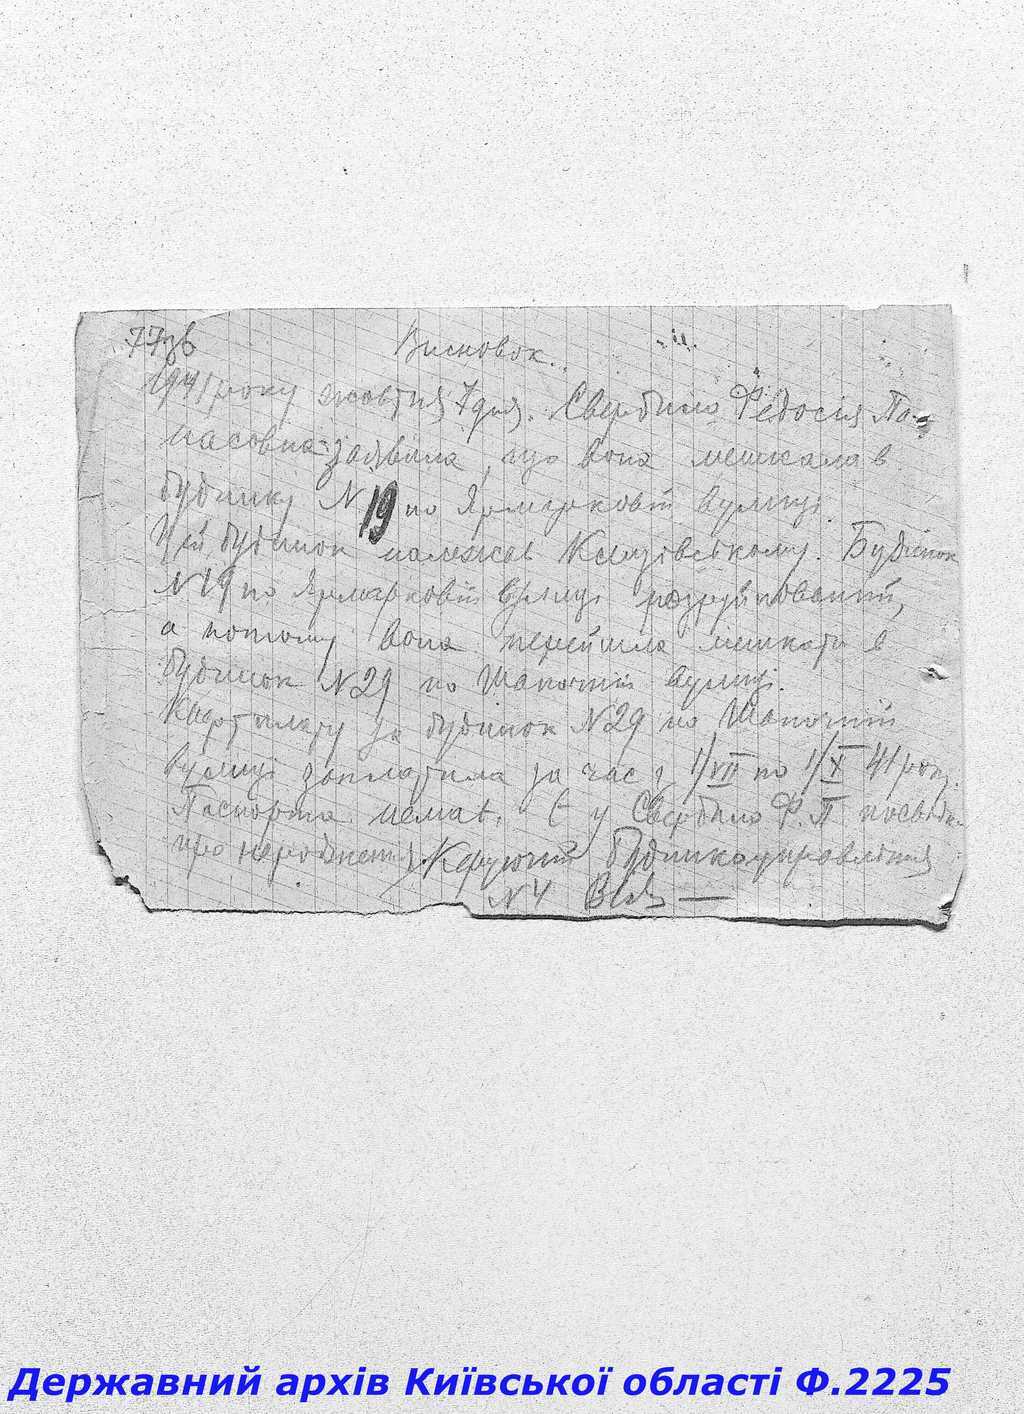 77зв
Висновок.
1941 року жовтня 7 дня. Свербило Федосія Па-
насовна заявила, що вона мешкала в
будинку N 19 по Ярмарковій вулиці.
Цей будинок належав. Будінок
N 19 по Ярмарковій вулиці розруйнований,
а потому вона перейшла мешкати в
будинок N 29 по Шапочній вулиці.
Кварт плату за будинок N 29 по Шапочній
вулиці заплатила за час з 1/VII по 1/X 41 року.
Паспорта немає. Є у Свербило Ф. П
про народження Керуючий будинкоуправління
N 4
Державний архів Київської області Ф.2225